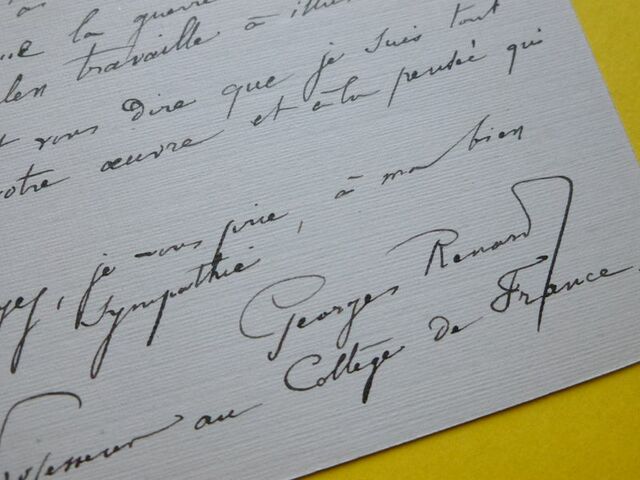 la guerre
travaille à
vous dire que je suis tout
otre œuvre et à la pensée qui
yez, je vous prie, à ma bien
sympathie
Georges Renard
Professeur au Collège de France.